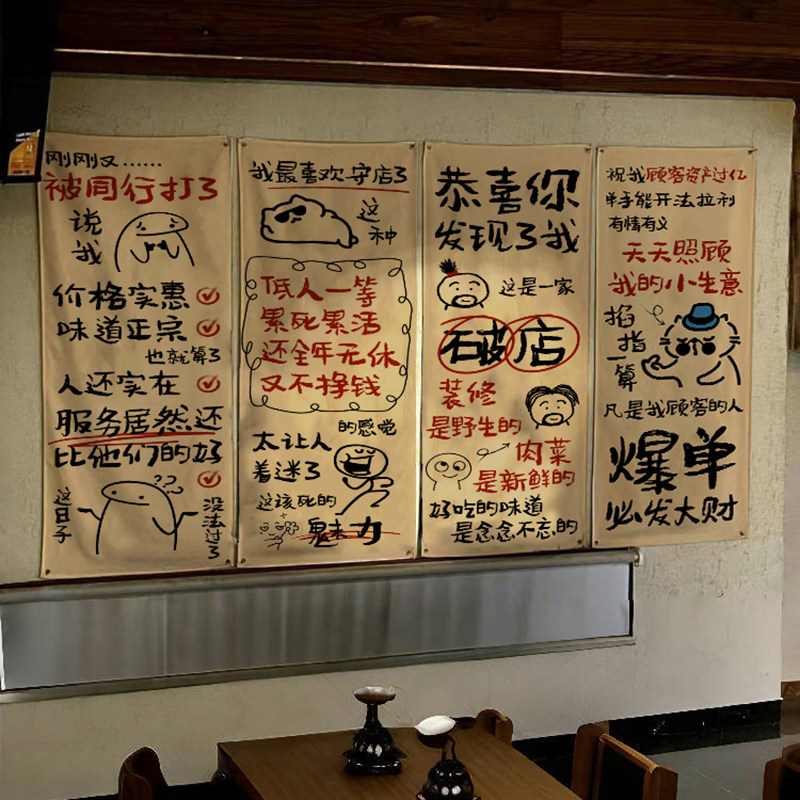 刚刚又......
被同行打了
说
我
价格实惠
味道正宗
也就算了
人还实在
服务居然还
比他们的好
???
这日子
没法过了
我最喜欢守店了
这
种
低人一等
累死累活
还全年无休
又不挣钱
的感觉
太让人
着迷了
这该死的
魅力
恭喜你
发现了我
这是一家
破店
装修
是野生的
肉菜
是新鲜的
好吃的味道
是念念不忘的
祝我顾客资产过亿
单手能开法拉利
有情有义
天天照顾
我的小生意
掐
指
一
算
凡是我顾客的人
爆单
必发大财